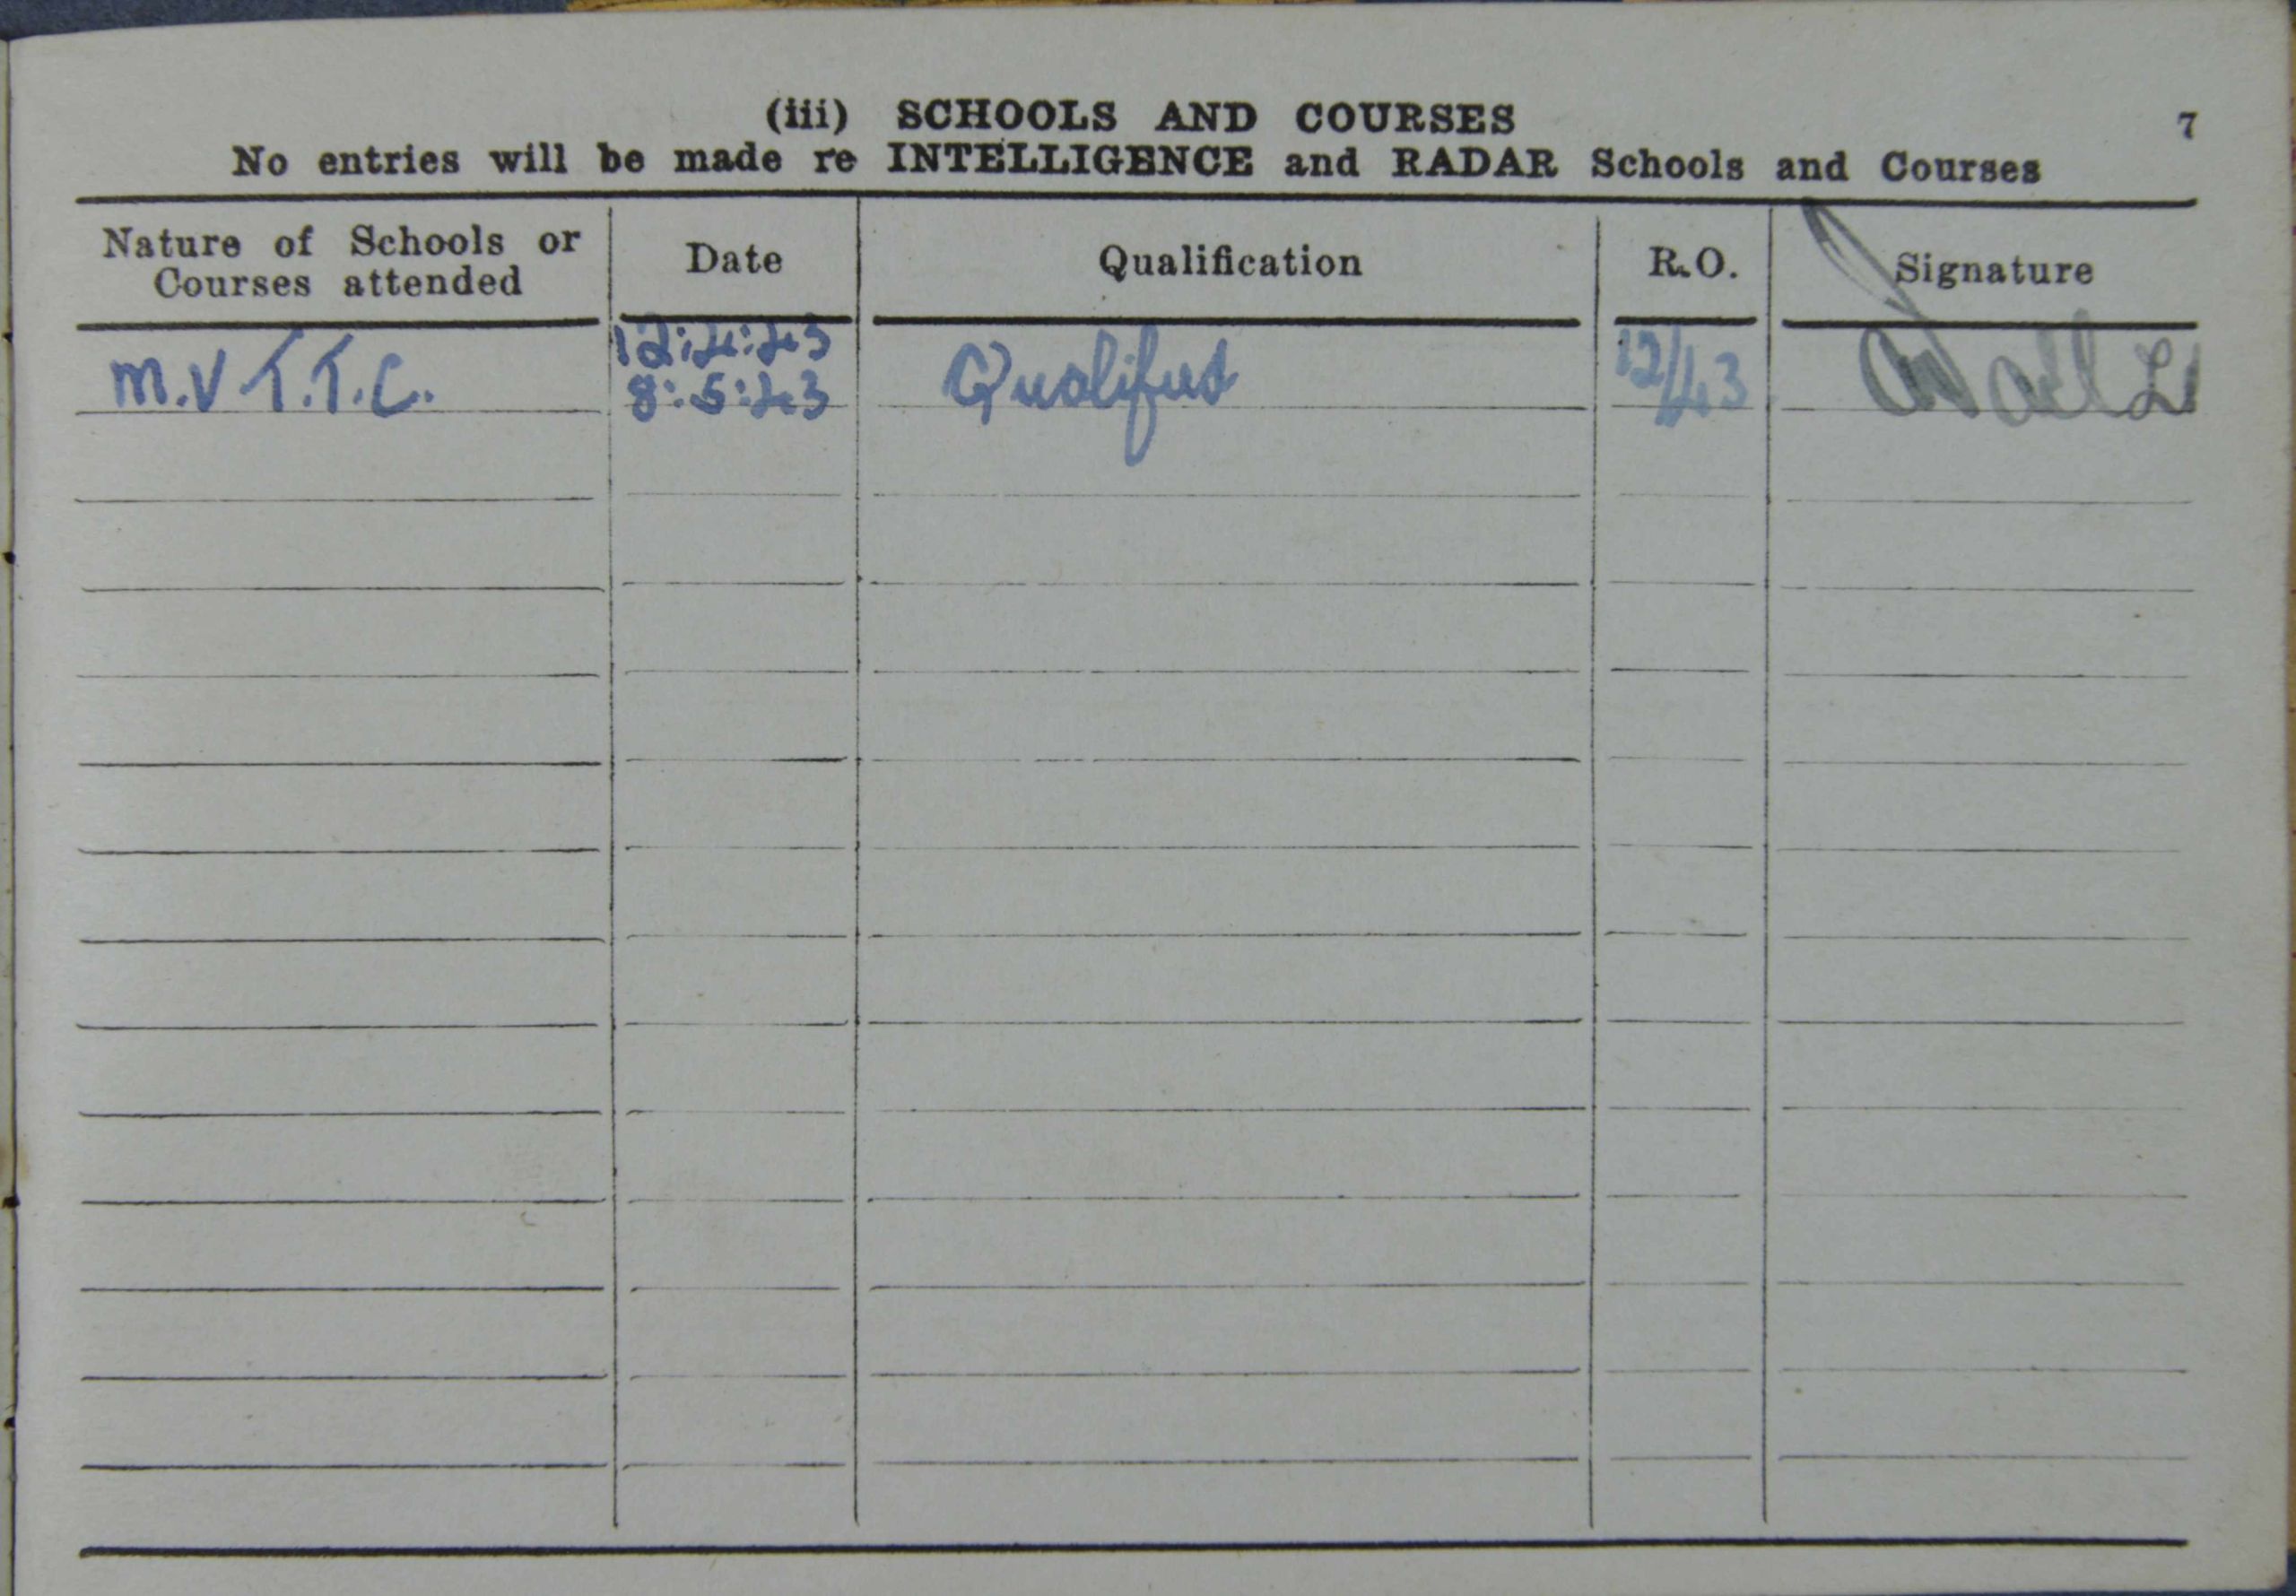 (iii) SCHOOLS AND COURSES 7
No entries will be made re INTELLIGENCE and RADAR Schools and Courses
Nature of Schools or
Courses attended
Date
Qualification
R.O.
Signature
M.V T.T.C.
12:4:43
8:5:43
Qualified
12/43